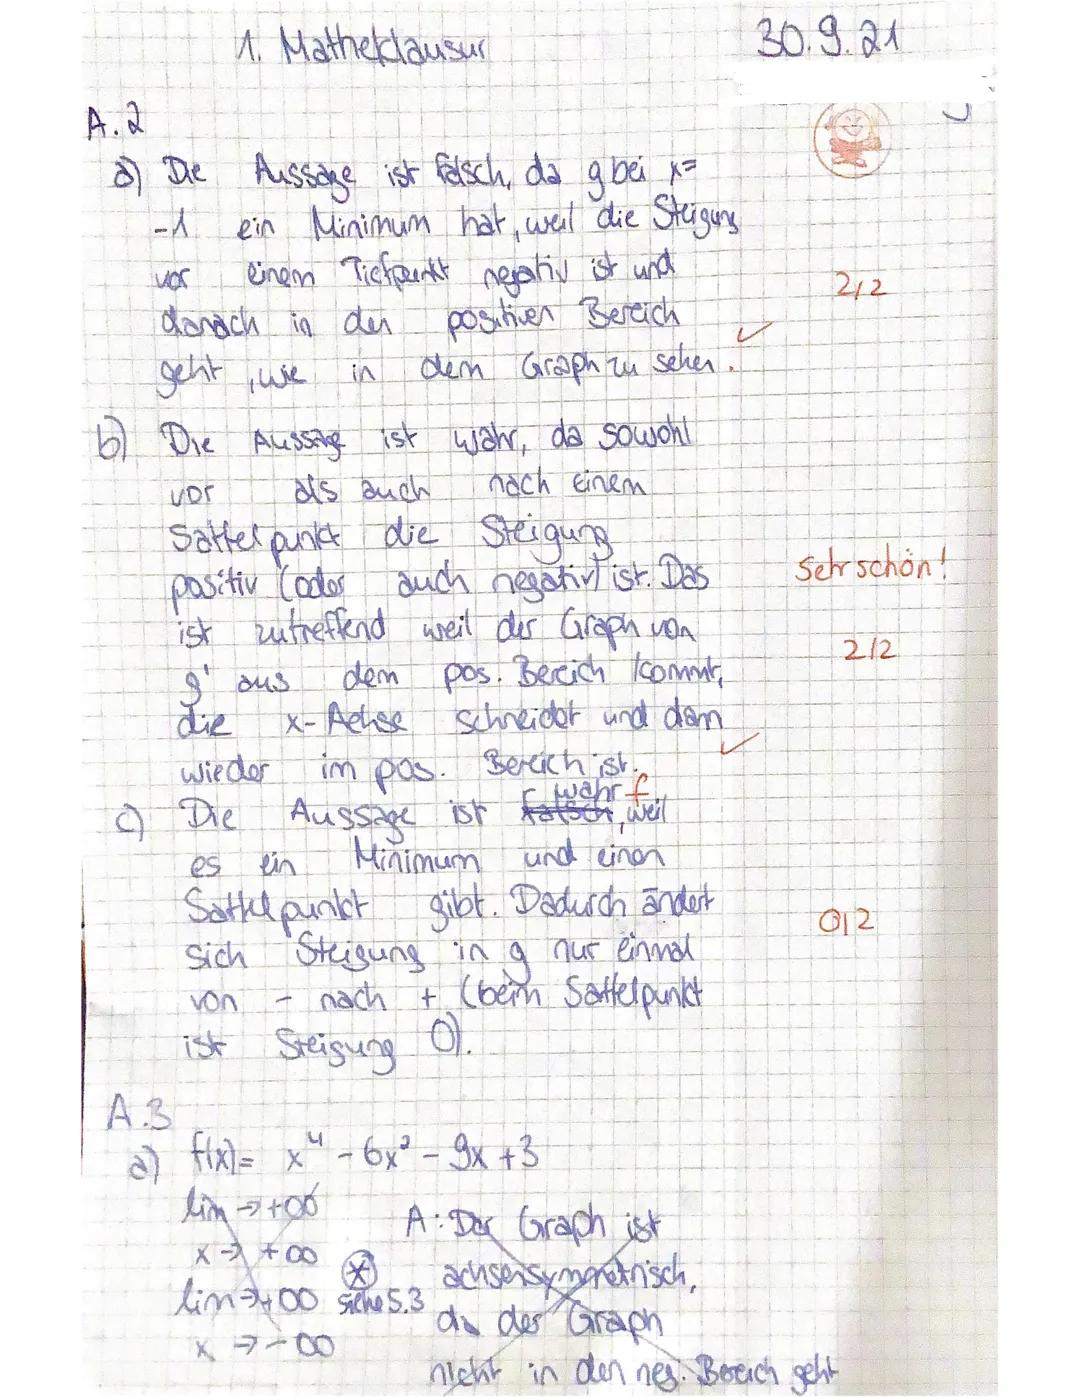 1. Matheklausur 30.9.21
A.2
a) Die Aussage ist falsch, da g bei x=
-1 ein Minimum hat, weil die Steigung
vor einem Tiefpunkt negativ ist und
2/2
danach in den positiven Bereich
geht, wie in dem Graph zu sehen. ✓
b) Die Aussage ist wahr, da sowohl
vor als auch nach einem
Sattelpunkt die Steigung
positiv (oder auch negativ) ist. Das
Sehr schön!
ist zutreffend weil der Graph von
2/2
g' aus dem pos. Bereich kommt,
die x-Achse schneidet und dann
wieder im pos. Bereich ist. ✓
wahr f
c) Die Aussage ist falsch, weil
es ein Minimum und einen
Sattelpunkt gibt. Dadurch ändert
0/2
sich Steigung in g nur einmal
von - nach + (beim Sattelpunkt
ist Steigung 0).
A.3
a) f(x)= x⁴ - 6x² - 9x + 3
lim → +∞
x → +∞
A: Der Graph ist
achsensymmetrisch,
lim → +∞ ⊛ siehe S.3
x → -∞
da der Graph
nicht in den neg. Bereich geht